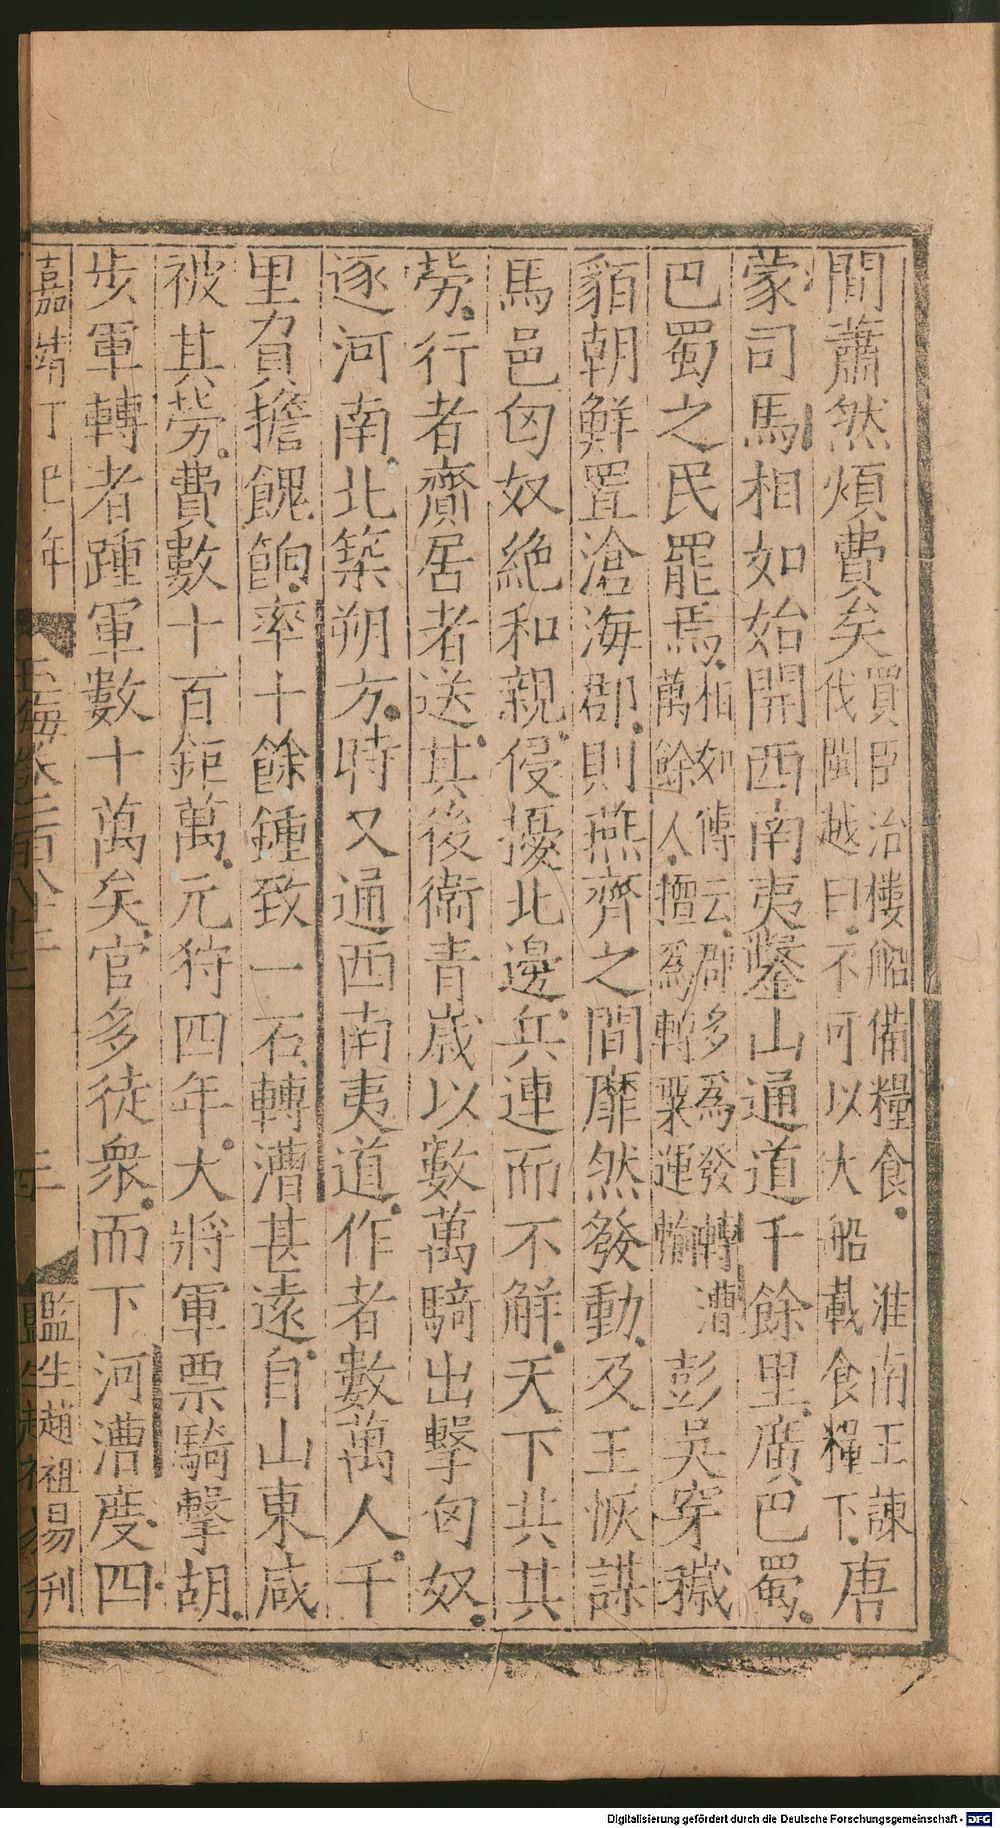 間蕭然煩費矣買臣治樓船備糧食淮南王諫伐閩越曰不可以大船載食糧下唐
蒙司馬相如始開西南夷鑿山通道千餘里廣巴蜀
巴蜀之民罷焉相如傳云郡多爲發轉漕萬餘人擅爲轉粟運輸彭吳穿穢
貊朝鮮置滄海郡則燕齊之間靡然發動及王恢謀
馬邑匈奴絶和親侵擾北邊兵連而不解天下共其
勞行者齎居者送其後衛青歲以數萬騎出擊匈奴
逐河南北築朔方時又通西南夷道作者數萬人千
里負擔餽餉率十餘鍾致一石轉漕甚遠自山東咸
被其勞費數十百鉅萬元狩四年大將軍票騎擊胡
步軍轉者踵軍數十萬矣官多徒衆而下河漕度四
嘉靖丁巳年
玉海卷一百八十二
三
監生趙祖易刊
Digitalisierung gefördert durch die Deutsche Forschungsgemeinschaft - DFG